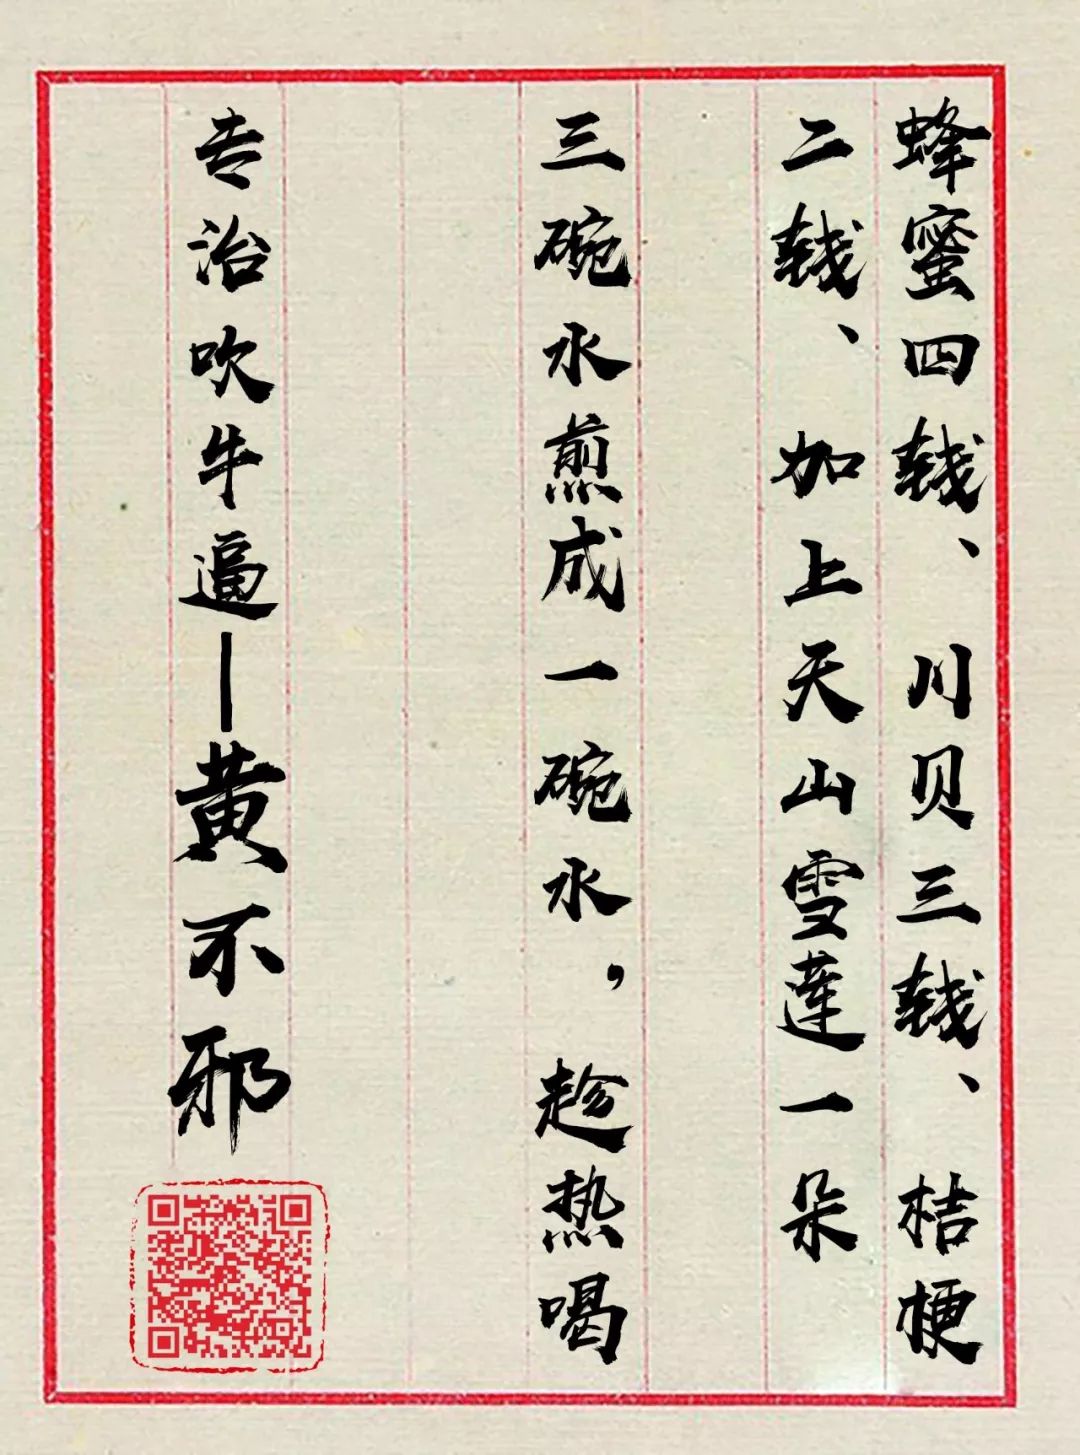 蜂蜜四钱、川贝三钱、桔梗
二钱、加上天山雪莲一朵
三碗水煎成一碗水，趁热喝
专治吹牛逼—黄不邪